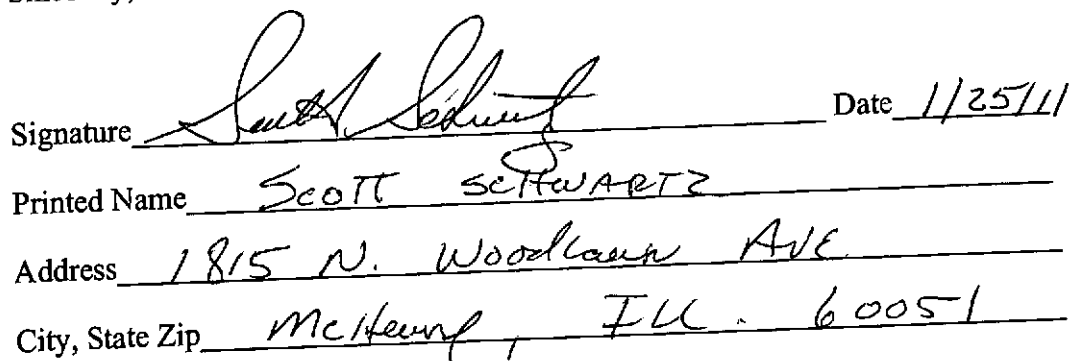 Signature Scott Schwartz Date 1/25/11
Printed Name SCOTT SCHWARTZ
Address 1815 N. Woodlawn AVE
City, State Zip McHenry, ILL. 60051